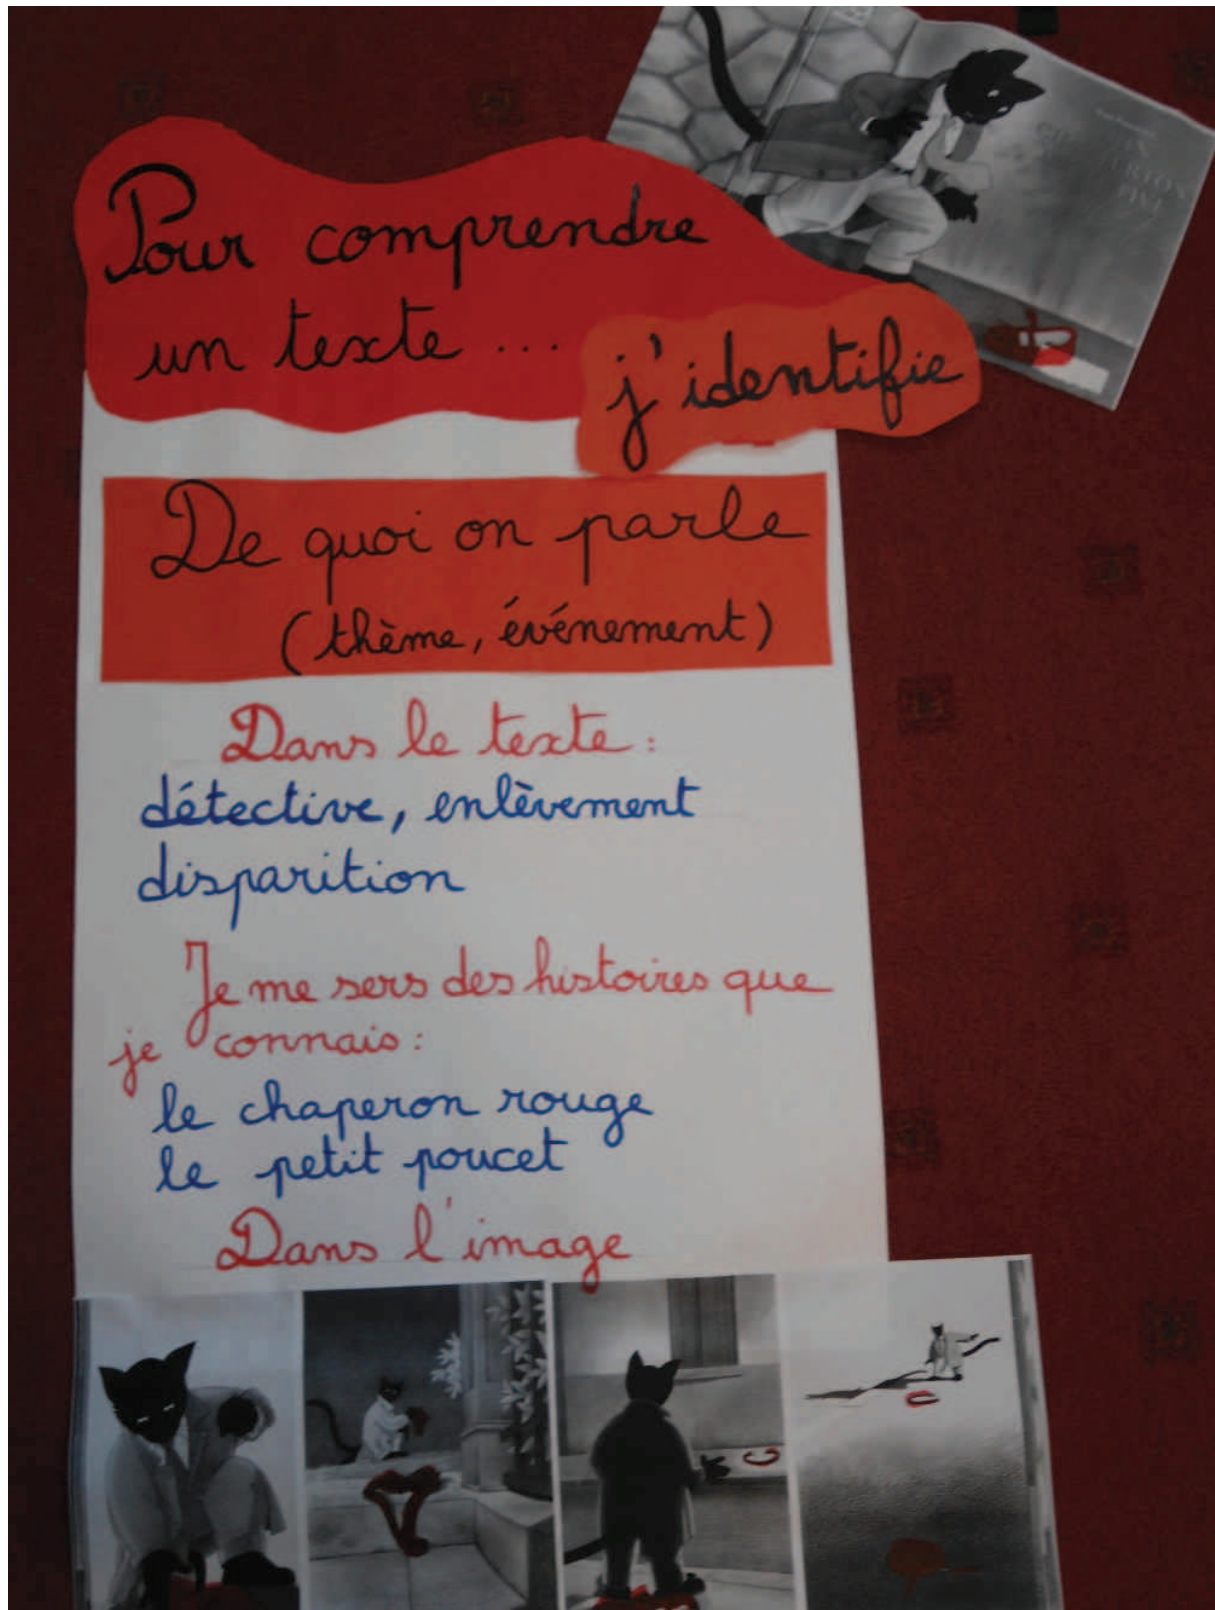 Pour comprendre
un texte ...
j'identifie
De quoi on parle
(thème, événement)
Dans le texte :
détective, enlèvement
disparition
Je me sers des histoires que
je connais :
le chaperon rouge
le petit poucet
Dans l'image